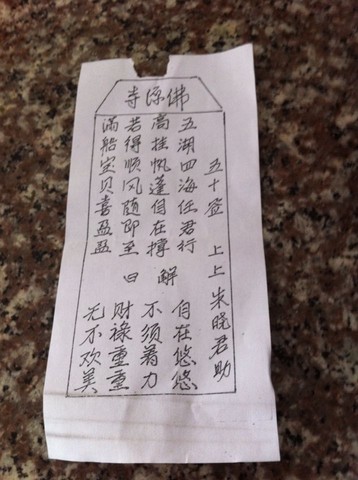 佛源寺
五十签 上上 朱晓君助
五湖四海任君行
高挂帆蓬自在撑
若得顺风随即至
满船宝贝喜盈盈
解曰
自在悠悠
不须着力
财禄重重
无不欢美